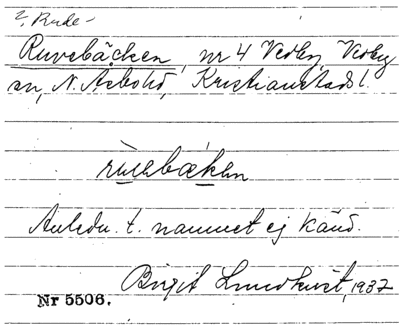 ? Rude-
Ruvebäcken, nr 4 Vedby, Vedby
sn, N. Åsbo hd, Kristianstads l.
rùvebæken
Anledn. t. namnet ej känd.
Birgit Lundkvist, 1937
Nr 5506.